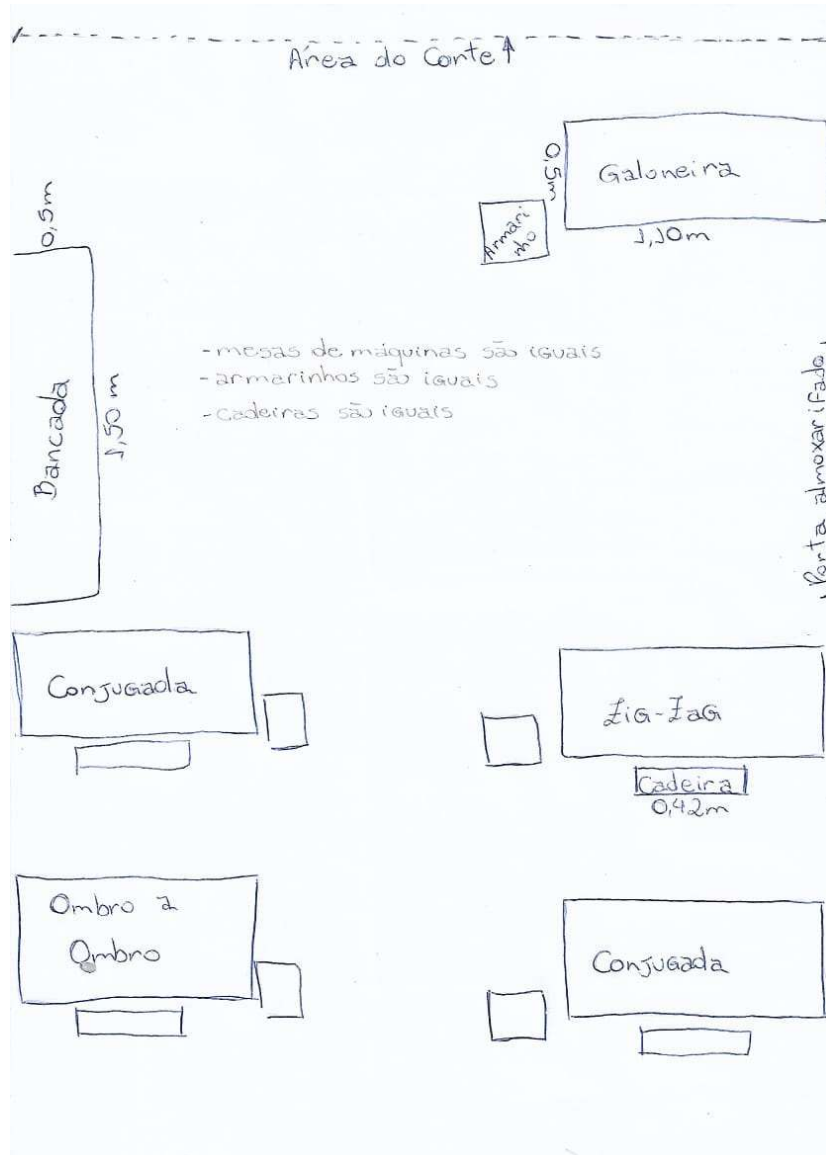 Área do Corte
Galoneira
0,5m
1,10m
Armari
nho
0,5m
Bancada
1,50m
- mesas de máquinas são iguais
- armarinhos são iguais
- cadeiras são iguais
Porta almoxarifado
Conjugada
Zig-Zag
Cadeira
0,42m
Ombro a
Ombro
Conjugada